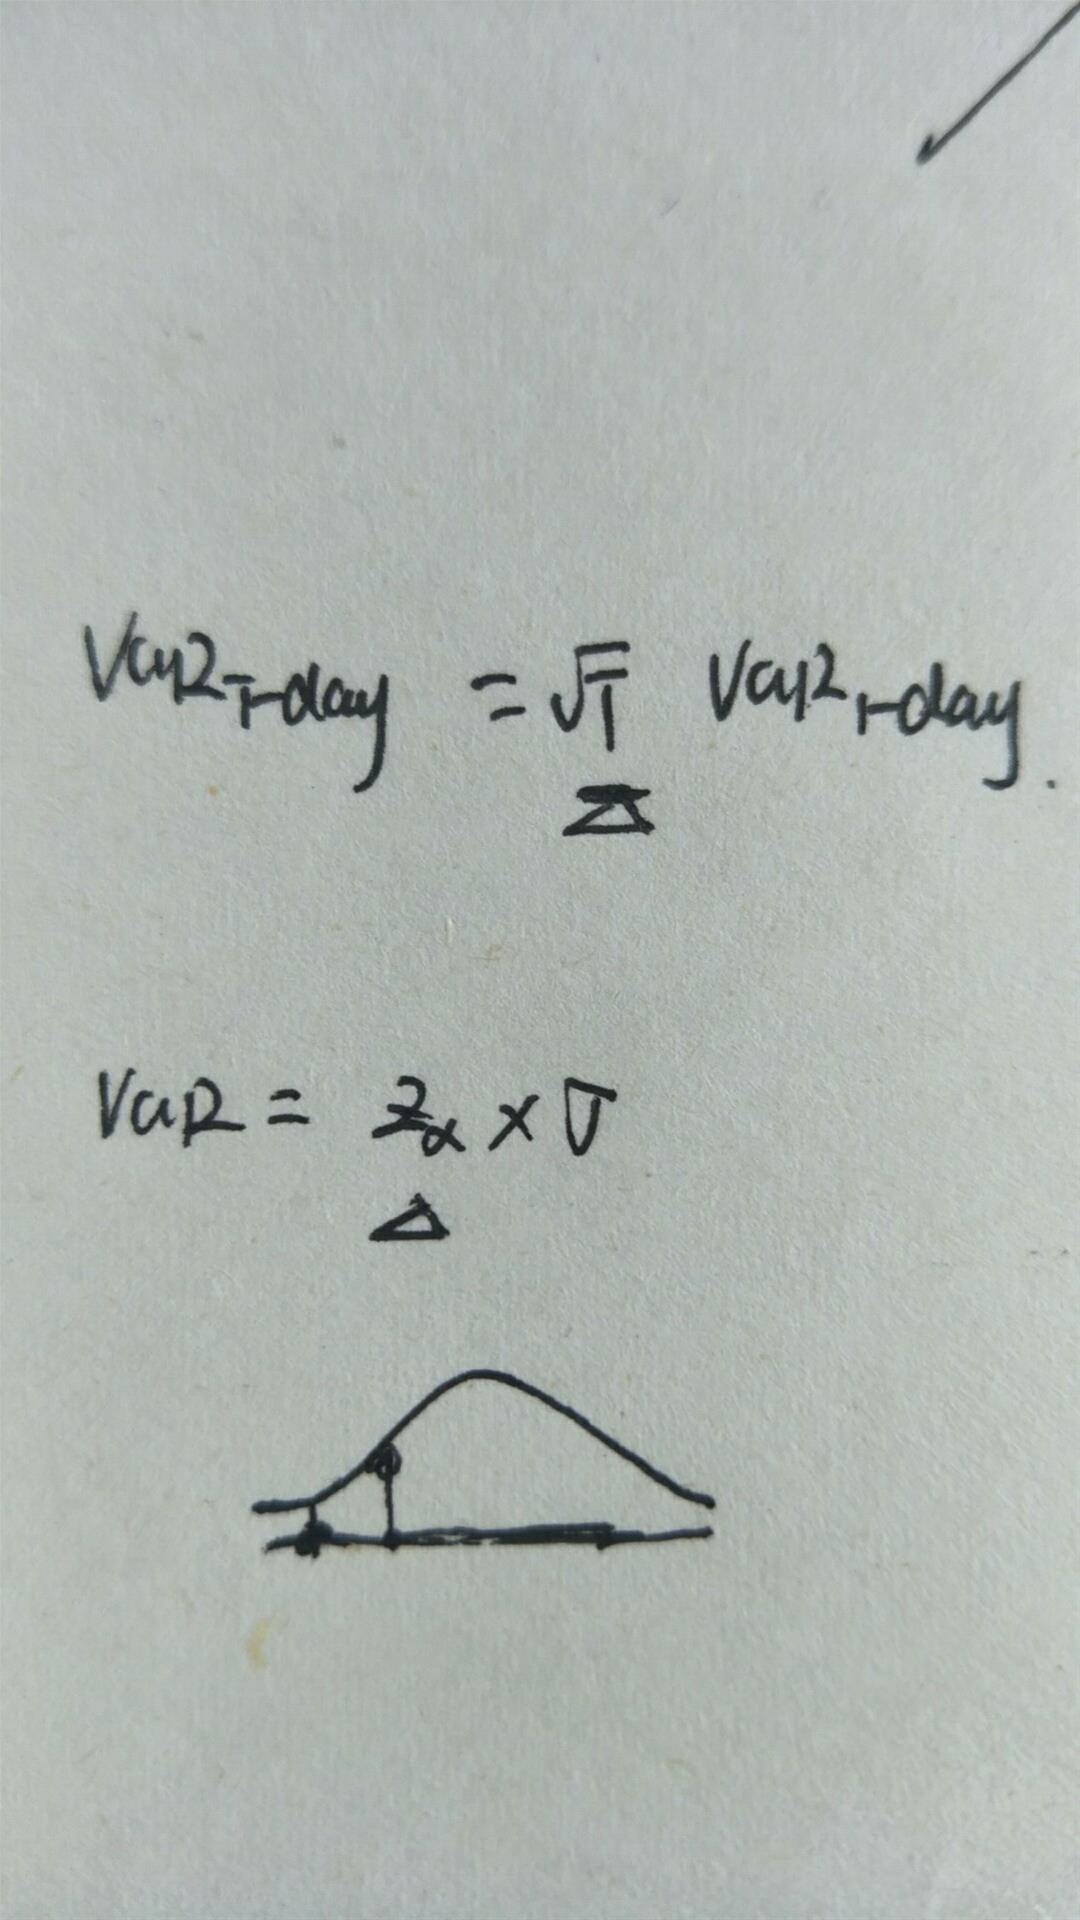 VaR T-day = √T VaR 1-day.
VaR = Zα × σ